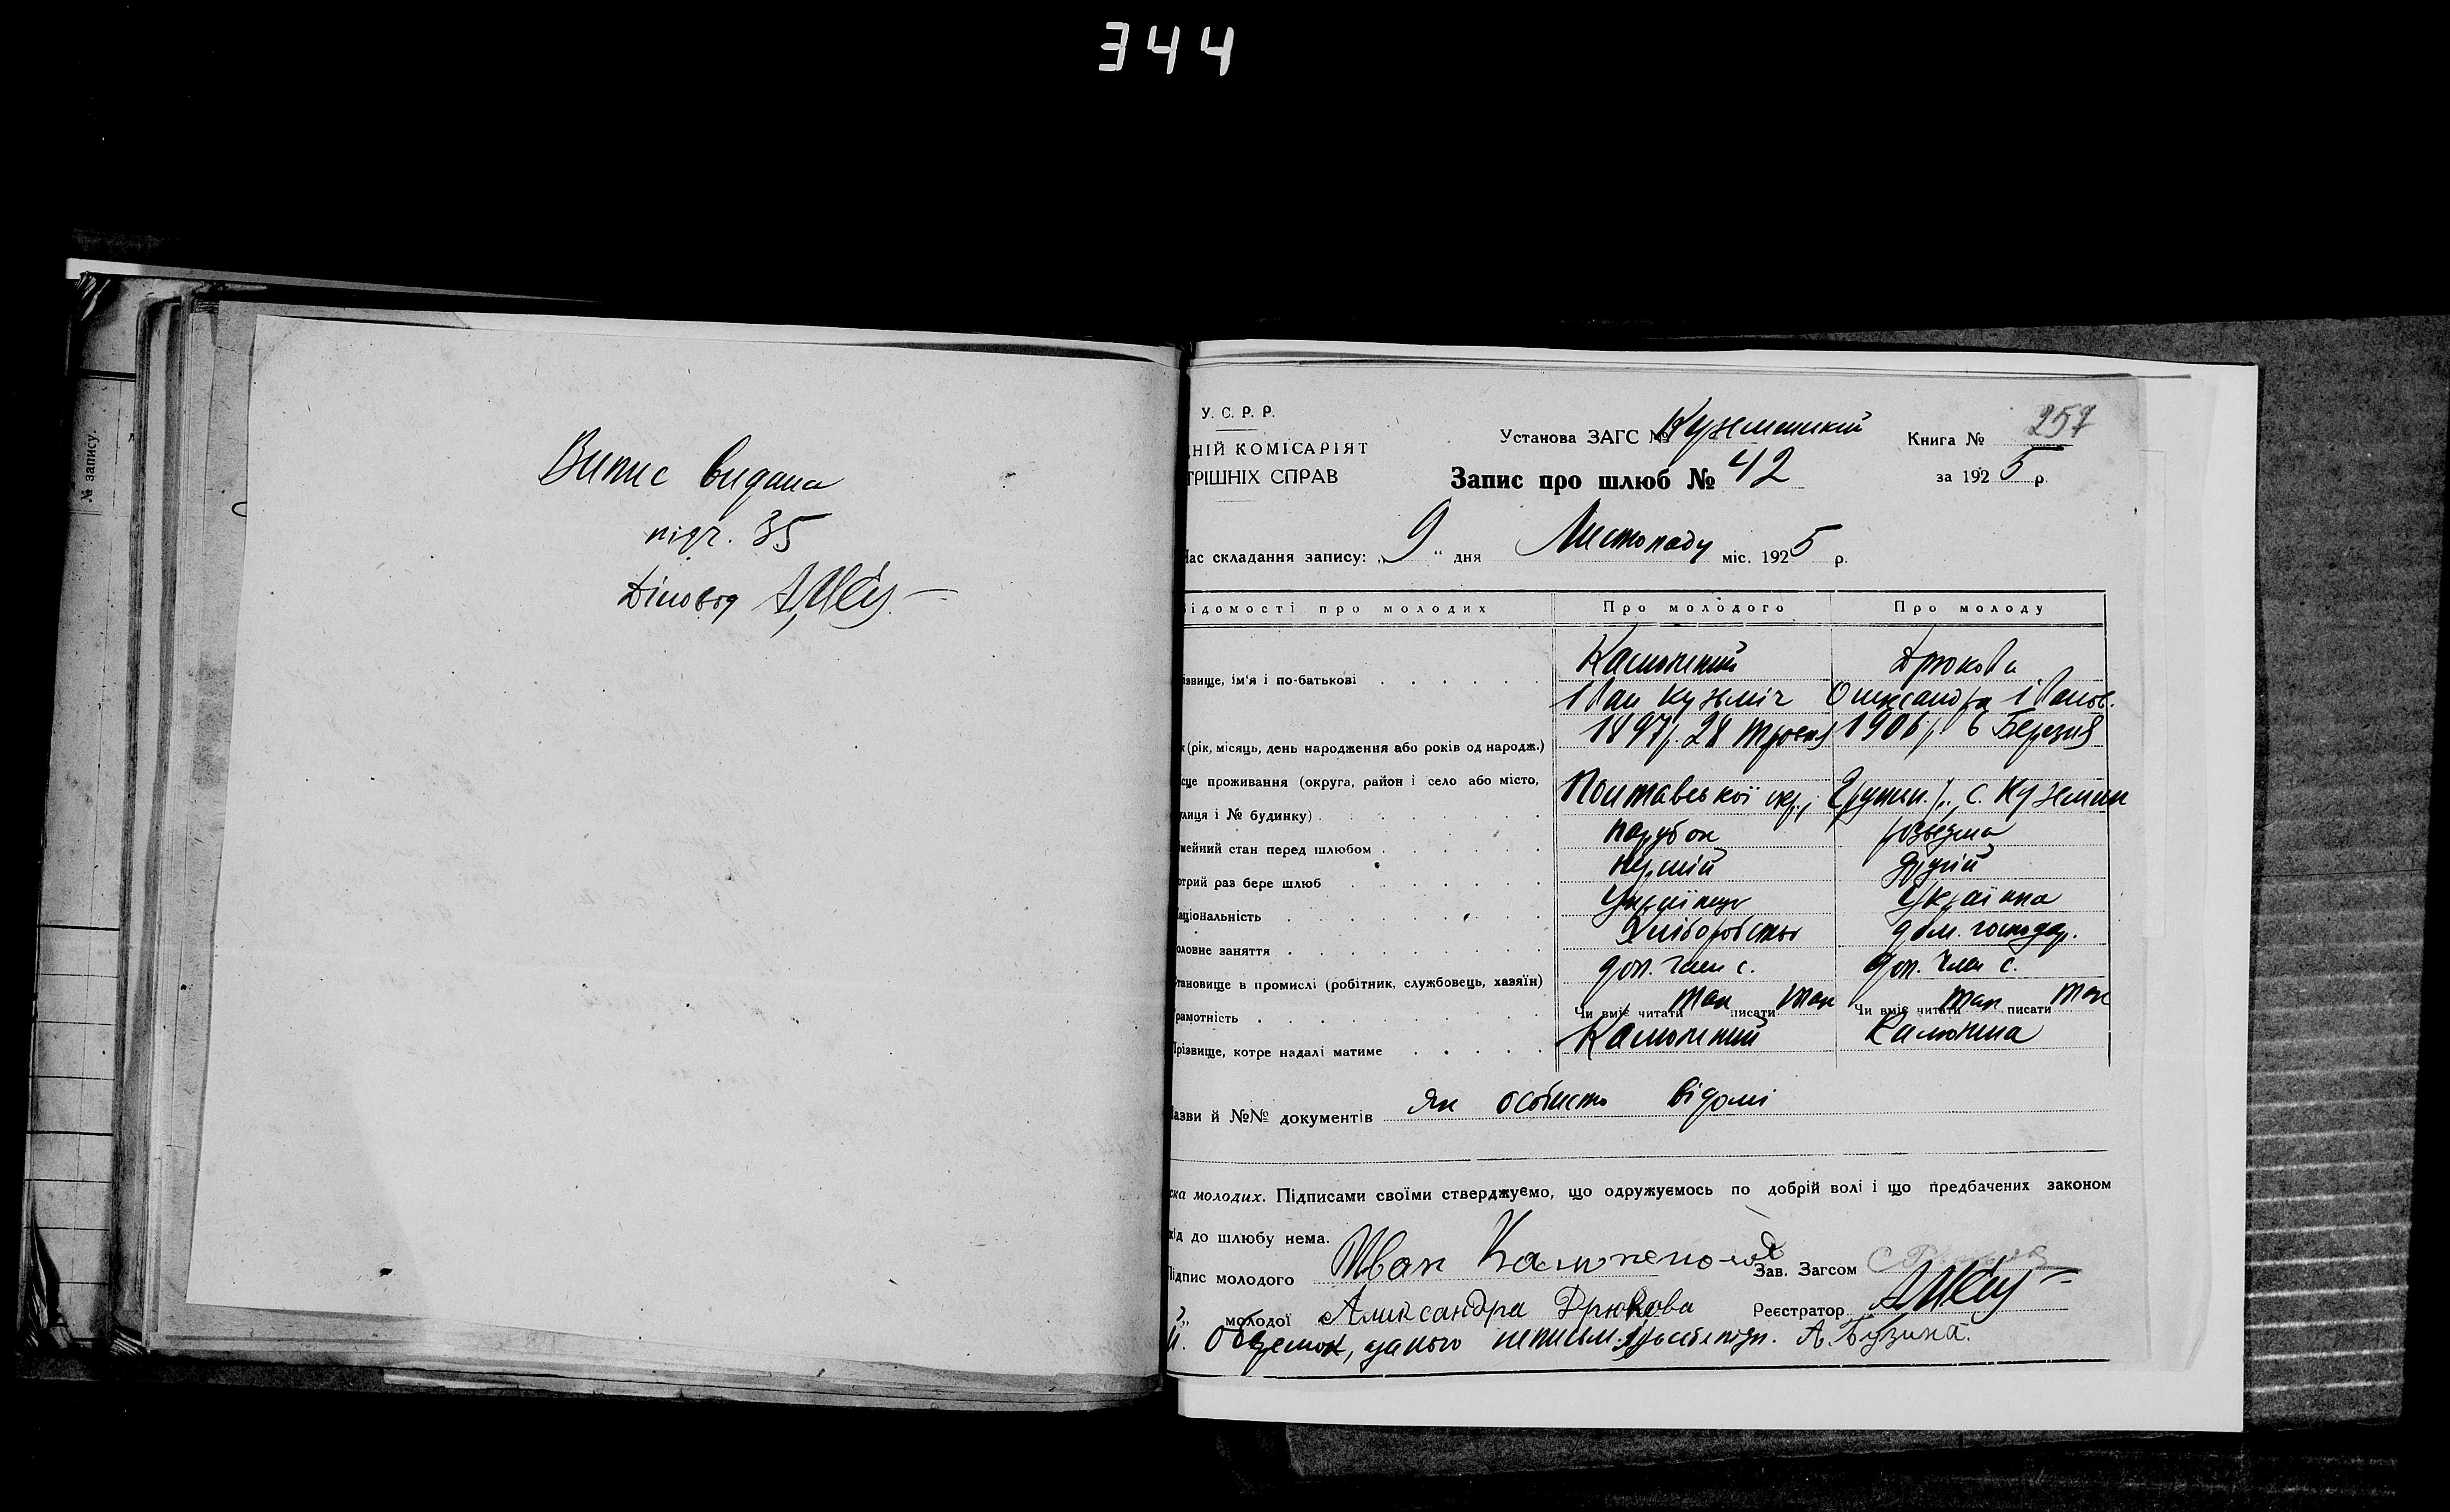 344
№ запису.
Випис видана
підч. 35
Діловод
У. С. Р. Р.
НІЙ КОМІСАРІЯТ
ТРІШНІХ СПРАВ
Установа ЗАГС № Куземенский
Книга № 257
Запис про шлюб № 42
за 1925 р.
Час складання запису: „9“ дня Листопаду міс. 1925 р.
Відомості про молодих Про молодого Про молоду
ізвище, ім'я і по-батькові
Калюжний Дрюкова
Іван Кузьміч Олександра Іванов.
(рік, місяць, день народження або років од народж.) 1897 р. 28 Травня 1906 р. 6 Березня
сце проживання (округа, район і село або місто,
улиця і № будинку) Полтавської окр., Грунськ. р., с. Куземин
мейний стан перед шлюбом парубок розведена
отрий раз бере шлюб перший другий
аціональність Українець Українка
оловне заняття Хліборобство дом. господар.
тановище в промислі (робітник, службовець, хазяїн) доп. член с. доп. член с.
рамотність Чи вміє читати так писати так Чи вміє читати так писати так
Прізвище, котре надалі матиме Калюжний Калюжна
Назви й №№ документів як особисто відомі
ска молодих. Підписами своїми стверджуємо, що одружуємось по добрій волі і що предбачених законом
код до шлюбу нема.
Підпис молодого Иван Калюжено Зав. Загсом
„ молодої Александра Дрюкова Реєстратор
А. Бузина.